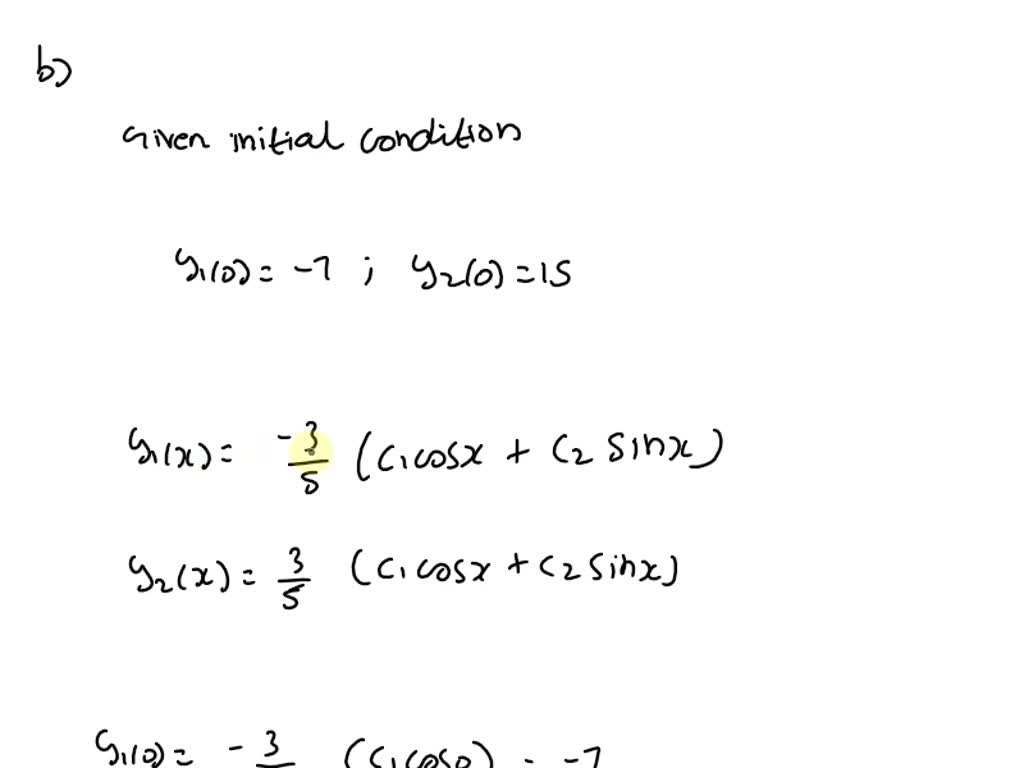 b)
Given initial condition
y₁(0) = -7 ; y₂(0) = 15
y₁(x) = -3/5 (c₁cosx + c₂ sinx)
y₂(x) = 3/5 (c₁cosx + c₂ sinx)
y₁(0) = -3 (c₁cos0) = -7